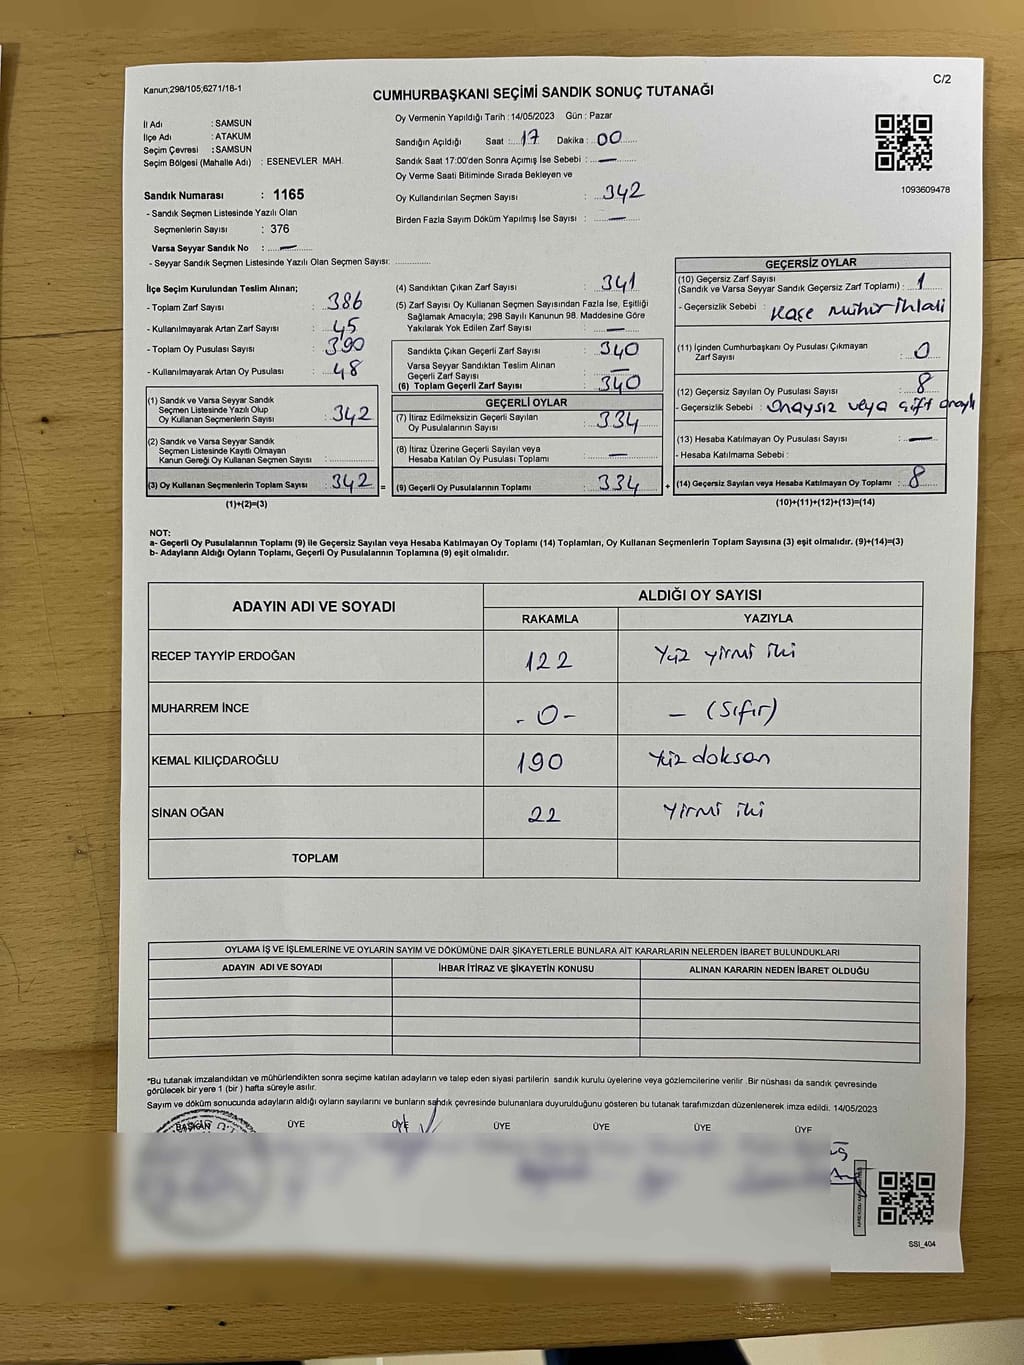 Kanun;298/105;6271/18-1
C/2
CUMHURBAŞKANI SEÇİMİ SANDIK SONUÇ TUTANAĞI
İl Adı : SAMSUN
İlçe Adı : ATAKUM
Seçim Çevresi : SAMSUN
Seçim Bölgesi (Mahalle Adı) : ESENEVLER MAH.
Sandık Numarası : 1165
- Sandık Seçmen Listesinde Yazılı Olan
Seçmenlerin Sayısı : 376
Varsa Seyyar Sandık No : —
- Seyyar Sandık Seçmen Listesinde Yazılı Olan Seçmen Sayısı:
Oy Vermenin Yapıldığı Tarih : 14/05/2023 Gün : Pazar
Sandığın Açıldığı Saat : 17 Dakika : 00
Sandık Saat 17:00'den Sonra Açımış İse Sebebi : —
Oy Verme Saati Bitiminde Sırada Bekleyen ve
Oy Kullandırılan Seçmen Sayısı : 342
Birden Fazla Sayım Döküm Yapılmış İse Sayısı : —
1093609478
İlçe Seçim Kurulundan Teslim Alınan;
- Toplam Zarf Sayısı : 386
- Kullanılmayarak Artan Zarf Sayısı : 45
- Toplam Oy Pusulası Sayısı : 390
- Kullanılmayarak Artan Oy Pusulası : 48
(1) Sandık ve Varsa Seyyar Sandık
Seçmen Listesinde Yazılı Olup
Oy Kullanan Seçmenlerin Sayısı : 342
(2) Sandık ve Varsa Seyyar Sandık
Seçmen Listesinde Kayıtlı Olmayan
Kanun Gereği Oy Kullanan Seçmen Sayısı :
(3) Oy Kullanan Seçmenlerin Toplam Sayısı : 342 =
(1)+(2)=(3)
(4) Sandıktan Çıkan Zarf Sayısı : 341
(5) Zarf Sayısı Oy Kullanan Seçmen Sayısından Fazla İse, Eşitliği
Sağlamak Amacıyla; 298 Sayılı Kanunun 98. Maddesine Göre
Yakılarak Yok Edilen Zarf Sayısı : —
Sandıkta Çıkan Geçerli Zarf Sayısı : 340
Varsa Seyyar Sandıktan Teslim Alınan
Geçerli Zarf Sayısı : —
(6) Toplam Geçerli Zarf Sayısı : 340
GEÇERLİ OYLAR
(7) İtiraz Edilmeksizin Geçerli Sayılan
Oy Pusulalarının Sayısı : 334
(8) İtiraz Üzerine Geçerli Sayılan veya
Hesaba Katılan Oy Pusulası Toplamı : —
(9) Geçerli Oy Pusulalarının Toplamı : 334 +
GEÇERSİZ OYLAR
(10) Geçersiz Zarf Sayısı
(Sandık ve Varsa Seyyar Sandık Geçersiz Zarf Toplamı) : 1
- Geçersizlik Sebebi : Kaşe Mühür İhlali
(11) İçinden Cumhurbaşkanı Oy Pusulası Çıkmayan
Zarf Sayısı : 0
(12) Geçersiz Sayılan Oy Pusulası Sayısı : 8
- Geçersizlik Sebebi : Onaysız veya çift onaylı
(13) Hesaba Katılmayan Oy Pusulası Sayısı : —
- Hesaba Katılmama Sebebi :
(14) Geçersiz Sayılan veya Hesaba Katılmayan Oy Toplamı : 8
(10)+(11)+(12)+(13)=(14)
NOT:
a- Geçerli Oy Pusulalarının Toplamı (9) ile Geçersiz Sayılan veya Hesaba Katılmayan Oy Toplamı (14) Toplamları, Oy Kullanan Seçmenlerin Toplam Sayısına (3) eşit olmalıdır. (9)+(14)=(3)
b- Adayların Aldığı Oyların Toplamı, Geçerli Oy Pusulalarının Toplamına (9) eşit olmalıdır.
ADAYIN ADI VE SOYADI
ALDIĞI OY SAYISI
RAKAMLA YAZIYLA
RECEP TAYYİP ERDOĞAN 122 Yüz yirmi iki
MUHARREM İNCE -0- — (Sıfır)
KEMAL KILIÇDAROĞLU 190 Yüz doksan
SİNAN OĞAN 22 Yirmi iki
TOPLAM
OYLAMA İŞ VE İŞLEMLERİNE VE OYLARIN SAYIM VE DÖKÜMÜNE DAİR ŞİKAYETLERLE BUNLARA AİT KARARLARIN NELERDEN İBARET BULUNDUKLARI
ADAYIN ADI VE SOYADI İHBAR İTİRAZ VE ŞİKAYETİN KONUSU ALINAN KARARIN NEDEN İBARET OLDUĞU
*Bu tutanak imzalandıktan ve mühürlendikten sonra seçime katılan adayların ve talep eden siyasi partilerin sandık kurulu üyelerine veya gözlemcilerine verilir .Bir nüshası da sandık çevresinde
görülecek bir yere 1 (bir ) hafta süreyle asılır.
Sayım ve döküm sonucunda adayların aldığı oyların sayılarını ve bunların sandık çevresinde bulunanlara duyurulduğunu gösteren bu tutanak tarafımızdan düzenlenerek imza edildi. 14/05/2023
BAŞKAN ÜYE ÜYE ÜYE ÜYE ÜYE ÜYE
SSI_404